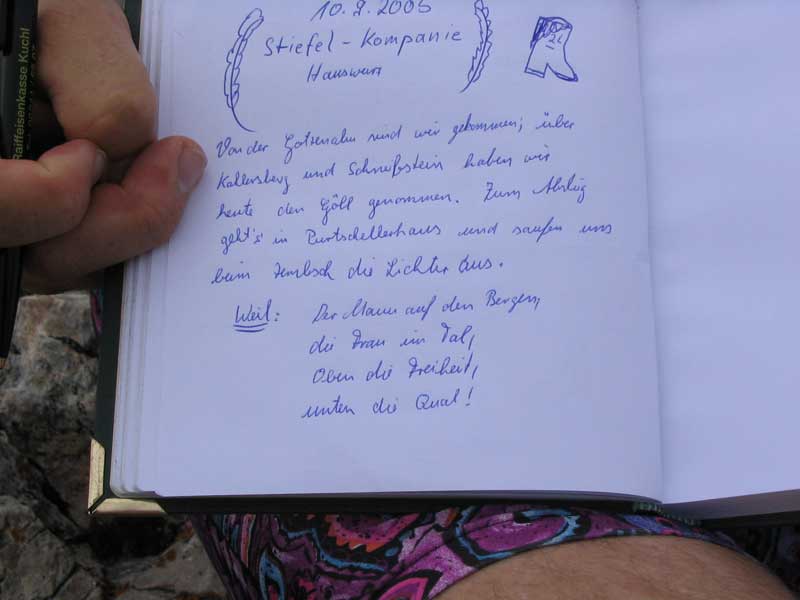 10.9.2005
Stiefel-Kompanie
Hauswurz
Von der Gotzenalm sind wir gekommen, über
Kahlersberg und Schneibstein haben wir
heute den Göll genommen. Zum Abstieg
geht's in Purtschellerhaus und saufen uns
beim die Lichter aus.
Weil: Der Mann auf den Bergen,
die Frau im Tal,
Oben die Freiheit,
unten die Qual!
Raiffeisenkasse Kuchl